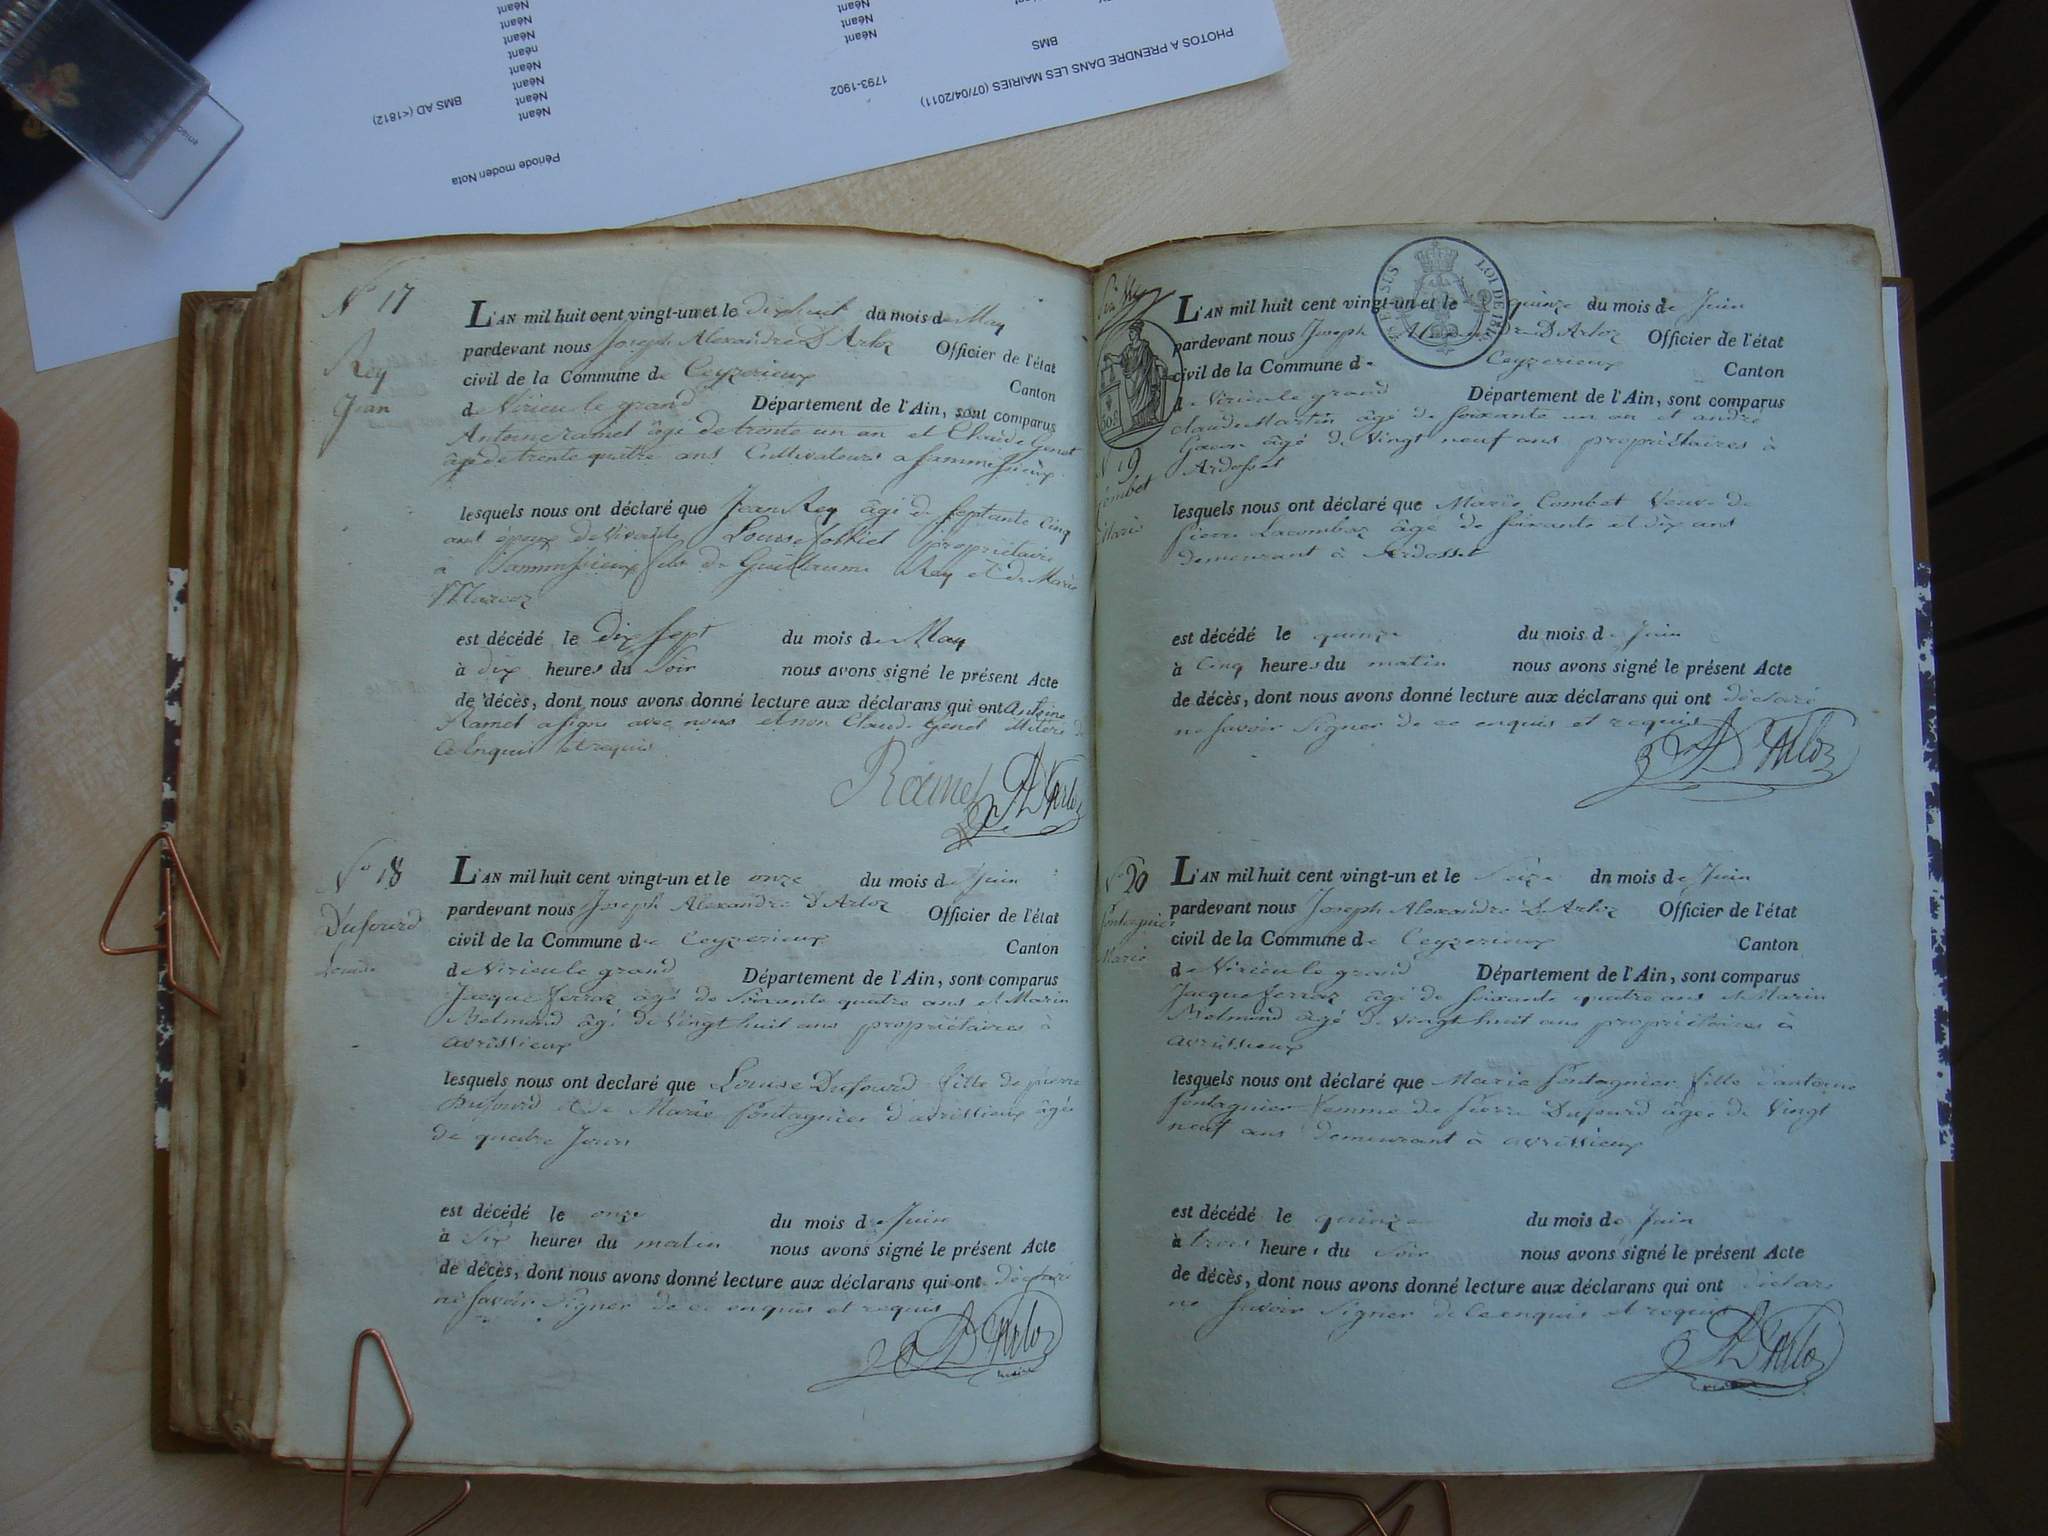 PHOTOS A PRENDRE DANS LES MAIRIES (07/04/2011)
BMS
1793-1902
BMS AD (<1812)
Néant
Néant
Néant
Néant
néant
Néant
Néant
Néant
Néant
Période moder Nota
N° 17
Rey
Jean
L'AN mil huit cent vingt-un et le dixhuit du mois de May
pardevant nous Joseph Alexandre D'Arloz Officier de l'état
civil de la Commune de Ceyzerieux Canton
de Virieu le grand Département de l'Ain, sont comparus
Antoine ramel âgé de trente un an et Claude Genet
âgé de trente quatre ans Cultivateurs a
lesquels nous ont déclaré que Jean Rey âgé de septante cinq
ans époux de vivante Louise propriétaire
a fils de Guillaume Rey et de Marie
Marcoz
est décédé le Dix sept du mois de May
à dix heures du Soir nous avons signé le présent Acte
de décès, dont nous avons donné lecture aux déclarans qui ont Antoine
Ramel a signé avec nous et non Claude Genet illiteré de
Ce Enquis et requis
Ramel D'Arloz
N° 18
Dufourd
Louise
L'AN mil huit cent vingt-un et le onze du mois de Juin
pardevant nous Joseph Alexandre D'Arloz Officier de l'état
civil de la Commune de Ceyzerieux Canton
de Virieu le grand Département de l'Ain, sont comparus
Jacque ferraz âgé de Soixante quatre ans et Marin
Belmond âgé de Vingt huit ans propriétaires à
avrissieux
lesquels nous ont declaré que Louise Dufourd fille de pierre
Dufourd et de Marie fontagnier d'avrissieux âgée
de quatre Jours
est décédé le onze du mois de Juin
à Six heures du matin nous avons signé le présent Acte
de décès, dont nous avons donné lecture aux déclarans qui ont déclaré
ne savoir Signer de ce enquis et requis
D'Arloz
maire
LOI DE 1816
50 c
N° 19
Combet
Marie
L'AN mil huit cent vingt-un et le quinze du mois de Juin
pardevant nous Joseph Alexandre D'Arloz Officier de l'état
civil de la Commune de Ceyzerieux Canton
de Virieu le grand Département de l'Ain, sont comparus
claude Martin âgé de soixante un an et andré
âgé de Vingt neuf ans propriétaires à
Ardosset
lesquels nous ont déclaré que Marie Combet Veuve de
Pierre Lacombaz âgé de soixante et dix ans
demeurant à Ardosset
est décédé le quinze du mois de Juin
à Cinq heures du matin nous avons signé le présent Acte
de décès, dont nous avons donné lecture aux déclarans qui ont déclaré
ne savoir Signer de ce enquis et requis
D'Arloz
N° 20
fontagnier
Marie
L'AN mil huit cent vingt-un et le Seize dn mois de Juin
pardevant nous Joseph Alexandre D'Arloz Officier de l'état
civil de la Commune de Ceyzerieux Canton
de Virieu le grand Département de l'Ain, sont comparus
Jacque ferraz âgé de soixante quatre ans et Marin
Belmond âgé de Vingt huit ans propriétaires à
avrissieux
lesquels nous ont déclaré que Marie fontagnier fille d'antoine
fontagnier femme de Pierre Dufourd âgée de Vingt
neuf ans demeurant à avrissieux
est décédé le quinze du mois de Juin
à trois heures du Soir nous avons signé le présent Acte
de décès, dont nous avons donné lecture aux déclarans qui ont déclaré
ne Savoir Signer de Ce enquis et requis
D'Arloz